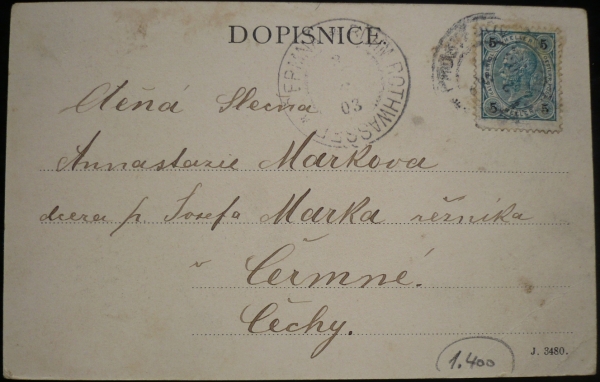 DOPISNICE
ROTHWASSER
03
5 5
5 5
Ctěná Slečna
Annastazie Markova
dcera p. Josefa Marka řezníka
v Čermné.
Čechy.
1.400
J. 3480.